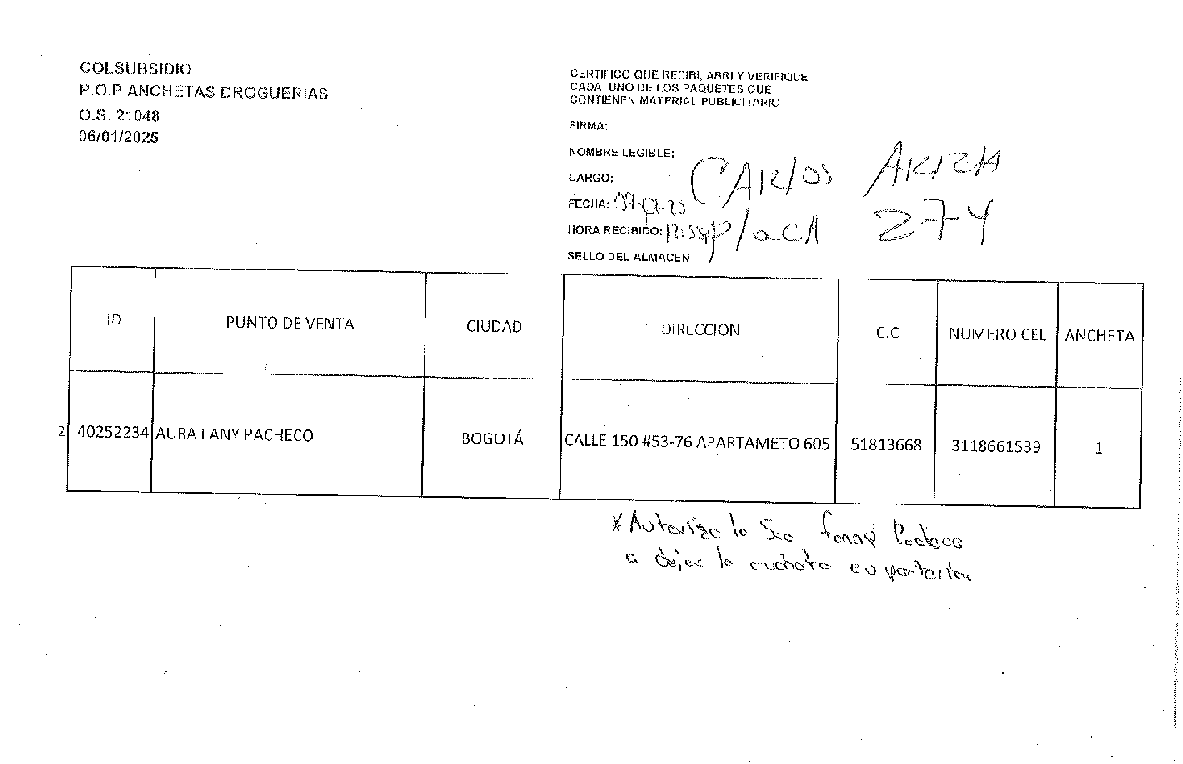 COLSUBSIDIO
P.O.P ANCHETAS DROGUERIAS
O.S. 21048
06/01/2025
CERTIFICO QUE RECIBI, ABRI Y VERIFIQUE
CADA UNO DE LOS PAQUETES QUE
CONTIENEN MATERIAL PUBLICITARIO
FIRMA:
NOMBRE LEGIBLE:
CARGO:
CARLOS ARIZA
FECHA:
HORA RECIBIDO:
Placa 274
SELLO DEL ALMACEN
ID PUNTO DE VENTA CIUDAD DIRECCION C.C NUMERO CEL ANCHETA
2 40252234 AURA FANY PACHECO BOGOTÁ CALLE 150 #53-76 APARTAMETO 605 51813668 3118661539 1
* Autoriza la Sra fanny Pacheco
a dejar la ancheta en porteria